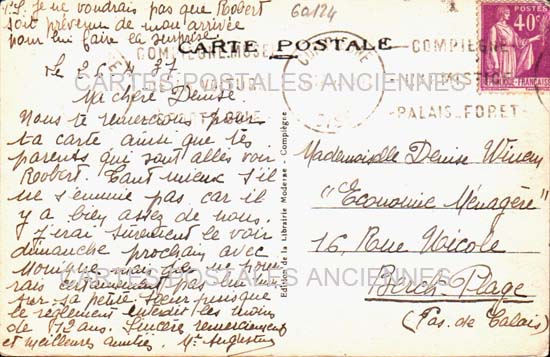 P.S. Je ne voudrais pas que Robert
soit prévenu de mon arrivée
pour lui faire la surprise.
60124
CARTE POSTALE
POSTES
40c
COMPIEGNE
PALAIS_FORET
CARTES POSTALES ANCIENNES
Le 26.4.37
Ma chère Denise
Nous te remercions pour
ta carte ainsi que tes
parents qui sont allés voir
Roobert. Tant mieux s'il
ne s'ennuie pas car il
y a bien assez de nous.
J'irai sûrement le voir
dimanche prochain avec
mais je ne pour
rais certainement pas
sa petite sœur puisque
le règlement interdit les moins
de 12 ans. Sincères remerciements
et meilleures amitiés. Me Augustine
Edition de la Librairie Moderne Compiègne
Mademoiselle Denise
"Economie Ménagère"
16, Rue Nicole
Berck-Plage
(Pas. de Calais)
CARTES POSTALES ANCIENNES